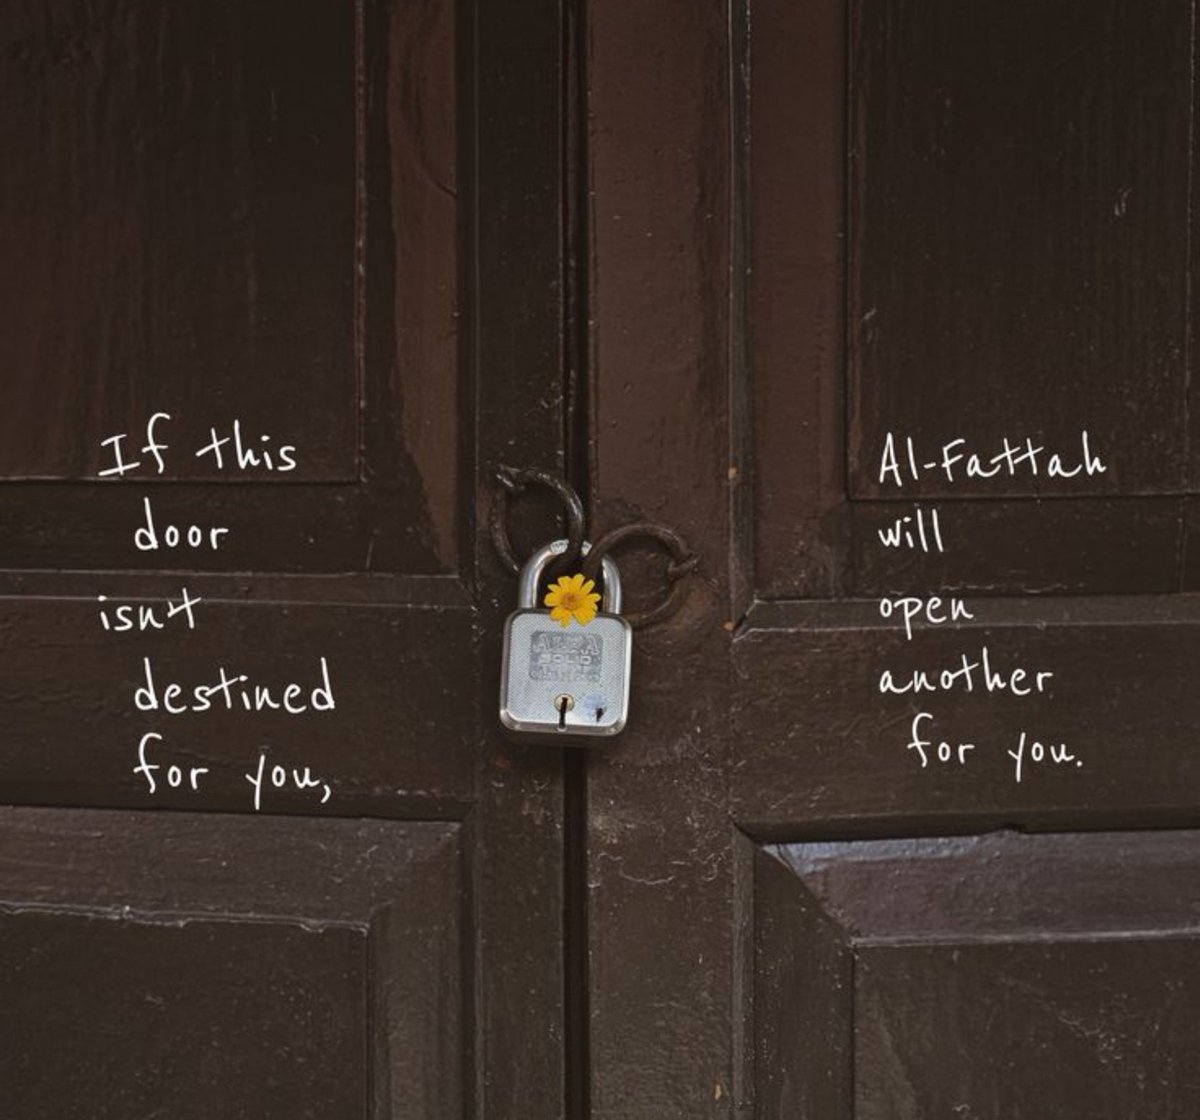 If this
door
isn't
destined
for you,
Al-Fattah
will
open
another
for you.
SOLID